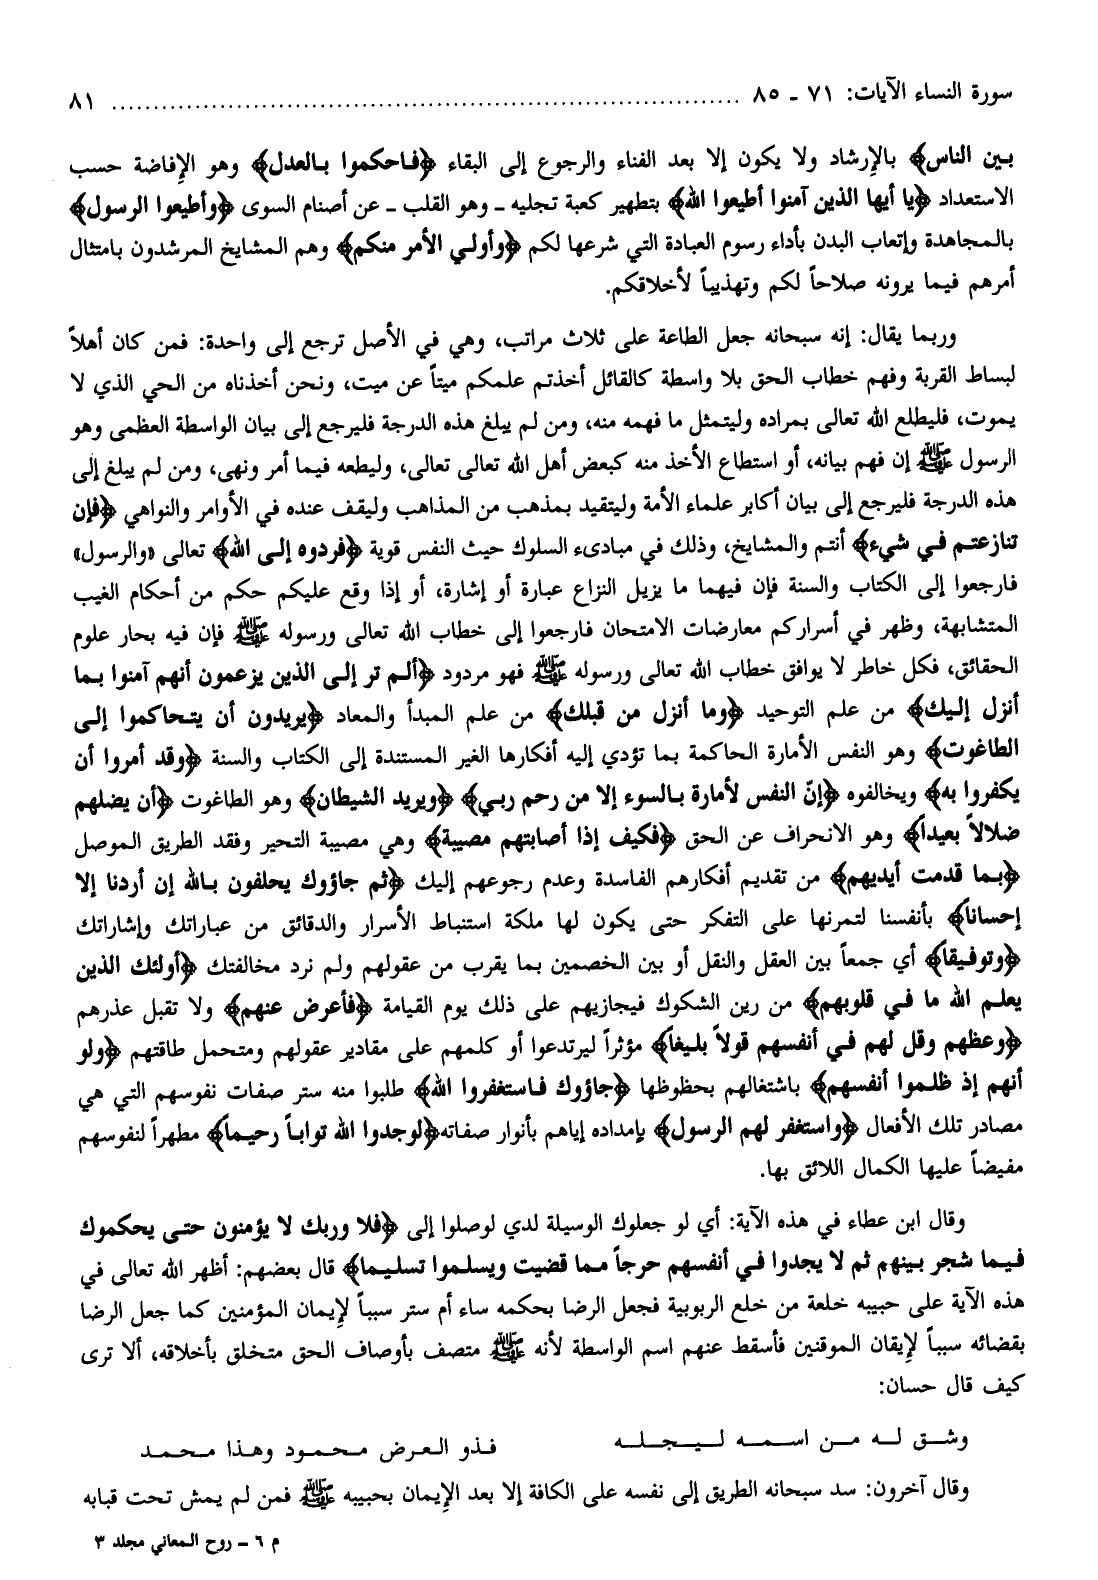 سورة النساء الآيات: ٧١ ـ ٨٥ ........................................................................... ٨١
بين الناس﴾ بالإرشاد ولا يكون إلا بعد الفناء والرجوع إلى البقاء ﴿فاحكموا بالعدل﴾ وهو الإفاضة حسب
الاستعداد ﴿يا أيها الذين آمنوا أطيعوا الله﴾ بتطهير كعبة تجليه ـ وهو القلب ـ عن أصنام السوى ﴿وأطيعوا الرسول﴾
بالمجاهدة وإتعاب البدن بأداء رسوم العبادة التي شرعها لكم ﴿وأولي الأمر منكم﴾ وهم المشايخ المرشدون بامتثال
أمرهم فيما يرونه صلاحاً لكم وتهذيباً لأخلاقكم.
وربما يقال: إنه سبحانه جعل الطاعة على ثلاث مراتب، وهي في الأصل ترجع إلى واحدة: فمن كان أهلاً
لبساط القربة وفهم خطاب الحق بلا واسطة كالقائل أخذتم علمكم ميتاً عن ميت، ونحن أخذناه من الحي الذي لا
يموت، فليطلع الله تعالى بمراده وليتمثل ما فهمه منه، ومن لم يبلغ هذه الدرجة فليرجع إلى بيان الواسطة العظمى وهو
الرسول ﷺ إن فهم بيانه، أو استطاع الأخذ منه كبعض أهل الله تعالى تعالى، وليطعه فيما أمر ونهى، ومن لم يبلغ إلى
هذه الدرجة فليرجع إلى بيان أكابر علماء الأمة وليتقيد بمذهب من المذاهب وليقف عنده في الأوامر والنواهي ﴿فإن
تنازعتم في شيء﴾ أنتم والمشايخ، وذلك في مبادىء السلوك حيث النفس قوية ﴿فردوه إلى الله﴾ تعالى «والرسول»
فارجعوا إلى الكتاب والسنة فإن فيهما ما يزيل النزاع عبارة أو إشارة، أو إذا وقع عليكم حكم من أحكام الغيب
المتشابهة، وظهر في أسراركم معارضات الامتحان فارجعوا إلى خطاب الله تعالى ورسوله ﷺ فإن فيه بحار علوم
الحقائق، فكل خاطر لا يوافق خطاب الله تعالى ورسوله ﷺ فهو مردود ﴿ألم تر إلى الذين يزعمون أنهم آمنوا بما
أنزل إليك﴾ من علم التوحيد ﴿وما أنزل من قبلك﴾ من علم المبدأ والمعاد ﴿يريدون أن يتحاكموا إلى
الطاغوت﴾ وهو النفس الأمارة الحاكمة بما تؤدي إليه أفكارها الغير المستندة إلى الكتاب والسنة ﴿وقد أمروا أن
يكفروا به﴾ ويخالفوه ﴿إنّ النفس لأمارة بالسوء إلا من رحم ربي﴾ ﴿ويريد الشيطان﴾ وهو الطاغوت ﴿أن يضلهم
ضلالاً بعيداً﴾ وهو الانحراف عن الحق ﴿فكيف إذا أصابتهم مصيبة﴾ وهي مصيبة التحير وفقد الطريق الموصل
﴿بما قدمت أيديهم﴾ من تقديم أفكارهم الفاسدة وعدم رجوعهم إليك ﴿ثم جاؤوك يحلفون بالله إن أردنا إلا
إحساناً﴾ بأنفسنا لتمرنها على التفكر حتى يكون لها ملكة استنباط الأسرار والدقائق من عباراتك وإشاراتك
﴿وتوفيقاً﴾ أي جمعاً بين العقل والنقل أو بين الخصمين بما يقرب من عقولهم ولم نرد مخالفتك ﴿أولئك الذين
يعلم الله ما في قلوبهم﴾ من رين الشكوك فيجازيهم على ذلك يوم القيامة ﴿فأعرض عنهم﴾ ولا تقبل عذرهم
﴿وعظهم وقل لهم في أنفسهم قولاً بليغاً﴾ مؤثراً ليرتدعوا أو كلمهم على مقادير عقولهم ومتحمل طاقتهم ﴿ولو
أنهم إذ ظلموا أنفسهم﴾ باشتغالهم بحظوظها ﴿جاؤوك فاستغفروا الله﴾ طلبوا منه ستر صفات نفوسهم التي هي
مصادر تلك الأفعال ﴿واستغفر لهم الرسول﴾ بإمداده إياهم بأنوار صفاته﴿لوجدوا الله تواباً رحيماً﴾ مطهراً لنفوسهم
مفيضاً عليها الكمال اللائق بها.
وقال ابن عطاء في هذه الآية: أي لو جعلوك الوسيلة لدي لوصلوا إلى ﴿فلا وربك لا يؤمنون حتى يحكموك
فيما شجر بينهم ثم لا يجدوا في أنفسهم حرجاً مما قضيت ويسلموا تسليما﴾ قال بعضهم: أظهر الله تعالى في
هذه الآية على حبيبه خلعة من خلع الربوبية فجعل الرضا بحكمه ساء أم ستر سبباً لإيمان المؤمنين كما جعل الرضا
بقضائه سبباً لإيقان الموقنين فأسقط عنهم اسم الواسطة لأنه ﷺ متصف بأوصاف الحق متخلق بأخلاقه، ألا ترى
كيف قال حسان:
وشق له من اسمه ليجله فذو العرض محمود وهذا محمد
وقال آخرون: سد سبحانه الطريق إلى نفسه على الكافة إلا بعد الإيمان بحبيبه ﷺ فمن لم يمش تحت قبابه
م ٦ ـ روح المعاني مجلد ٣